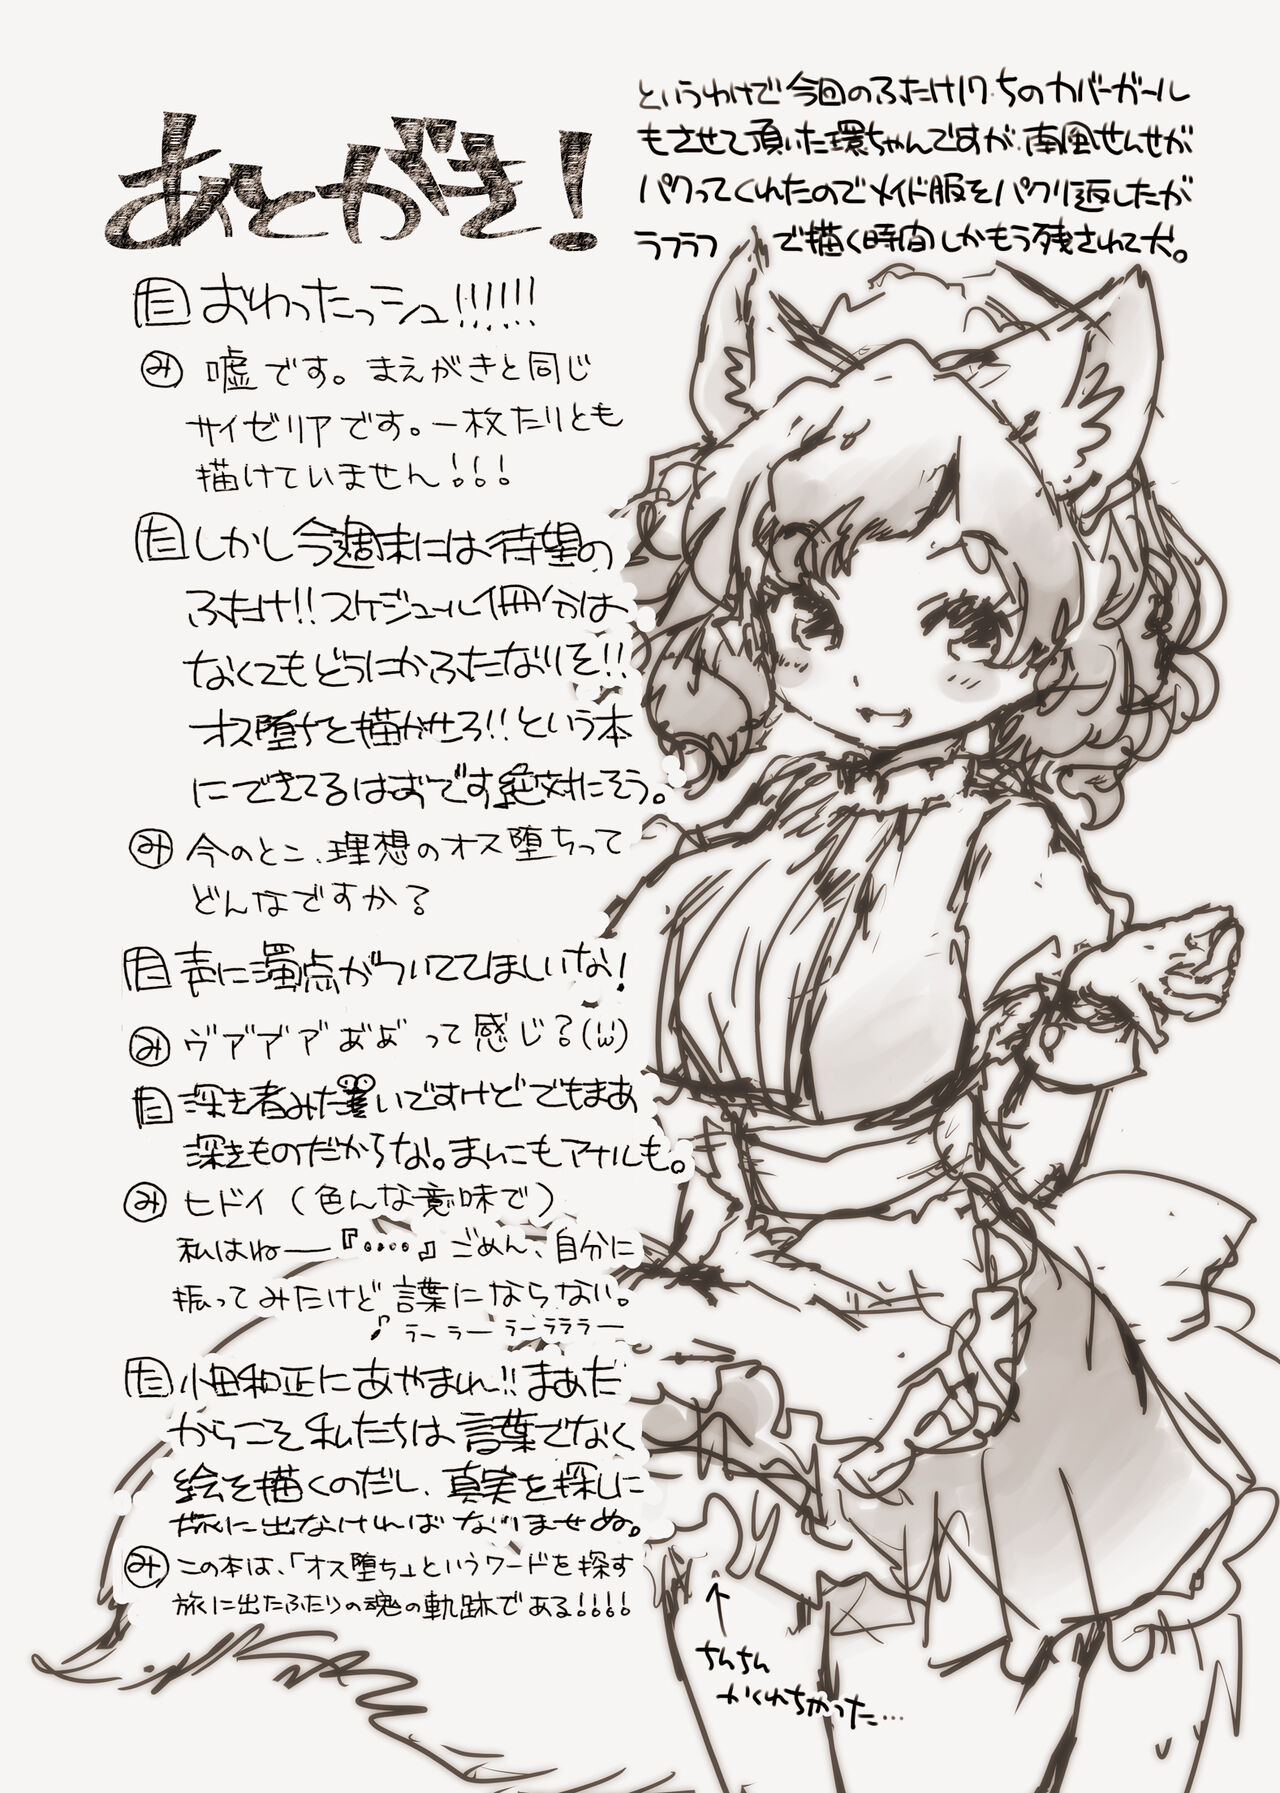 あとがき！
というわけで今回のふたけ17.5のカバーガール
もさせて頂いた環ちゃんですが、南風せんせが
パクってくれたのでメイド服をパクリ返したが
ラフラフ で描く時間しかもう残されて犬。
た おわったっシュ!!!!!!
み 嘘です。まえがきと同じ
サイゼリアです。一枚たりとも
描けていません!!!
た しかし今週末には待望の
ふたけ!!スケジュール1冊分は
なくてもどうにかふたなりを!!
オス堕ちを描かせろ!!という本
にできてるはおです絶対にそう。
み 今のとこ、理想のオス堕ちって
どんなですか？
た 声に濁点がついててほしいな！
み ヴア゛ア゛ア゛あ゛ぁ゛って感じ？(´ω`)
た 深き者みたいですけどでもまあ
深きものだからな。まんこもアナルも。
み ヒドイ（色んな意味で）
私はねー『・・・・』ごめん、自分に
振ってみたけど言葉にならない。
♪ラーラーラーラララー
た 小田和正にあやまれ!!まぁだ
からこそ私たちは言葉でなく
絵を描くのだし、真実を探しに
旅に出なければなりませぬ。
み この本は、「オス堕ち」というワードを探す
旅に出たふたりの魂の軌跡である!!!!
ちんちん
かくれちゃった…